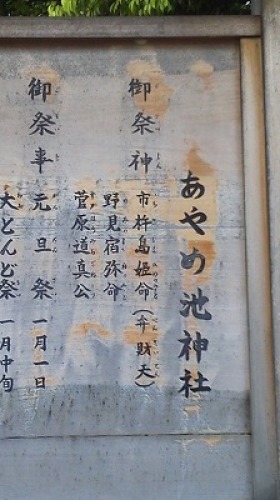 あやめ池神社
御祭神
市杵島姫命(弁財天)
野見宿弥命
菅原道真公
御祭事
元旦祭 一月一日
大とんど祭 一月中旬